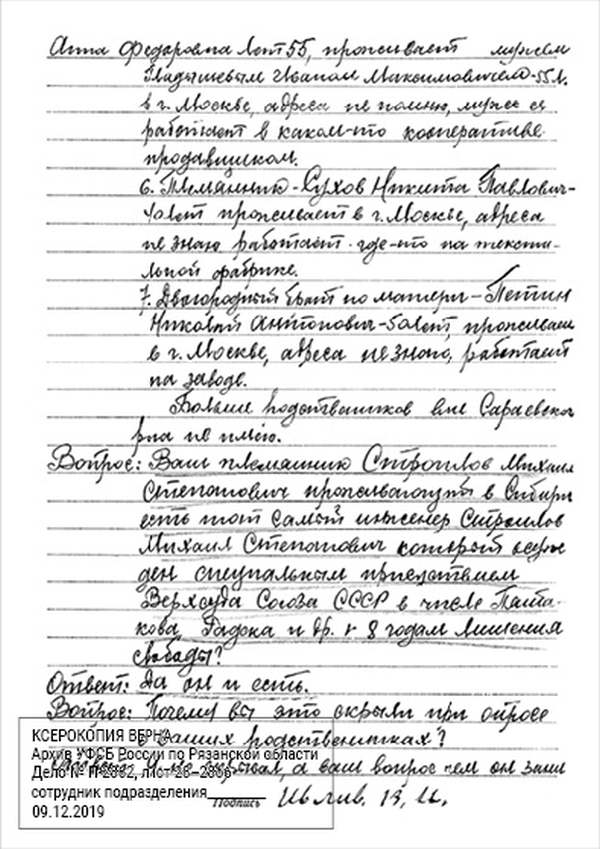 Анна Федаровна лет 55, проживает мужем
Гладышевым Иваном Максимовичем-55л.
в г. Москве, адреса не помню, муж ея
работает в каком-то кооперативе
продавщиком.
6. Племянник-Сухов Никита Павлович-
40лет проживает в г. Москве, адреса
не знаю работает где-то на тексти-
льной фабрике.
7. Двоюродный брат по матери-Петин
Николай Антонович-50лет, проживает
в г. Москве, адреса не знаю, работает
на заводе.
Больше родственников вне Сараевского
р-на не имею.
Вопрос: Ваш племянник Строилов Михаил
Степанович проживающий в Сибири
есть тот самый инженер Строилов
Михаил Степанович который осуж-
ден специальным присутствием
Верхсуда Союза СССР в числе Пята-
кова, Радека и др. к 8 годам лишения
свободы?
Ответ: Да он и есть.
Вопрос: Почему вы это скрыли при опросе
о ваших родственниках?
я не скрывал, а ваш вопрос чем он зани
КСЕРОКОПИЯ ВЕРНА
Архив УФСБ России по Рязанской области
Дело №
сотрудник подразделения
Подпись
09.12.2019